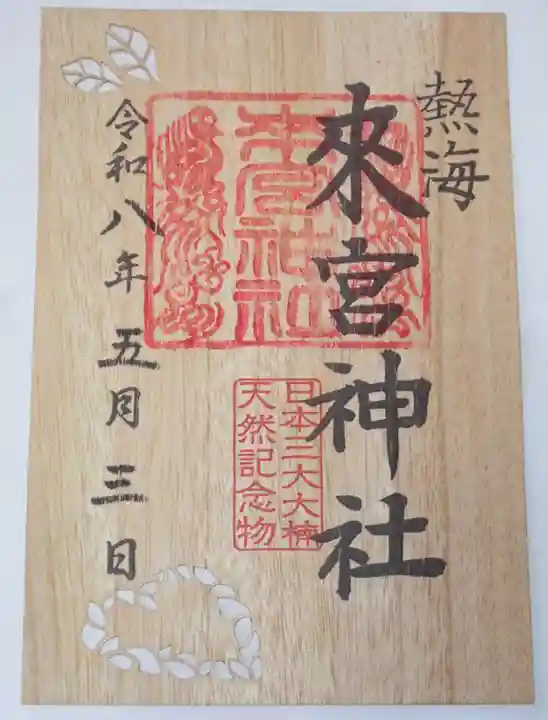 熱海
來宮神社
日本三大大楠
天然記念物
令和八年五月三日